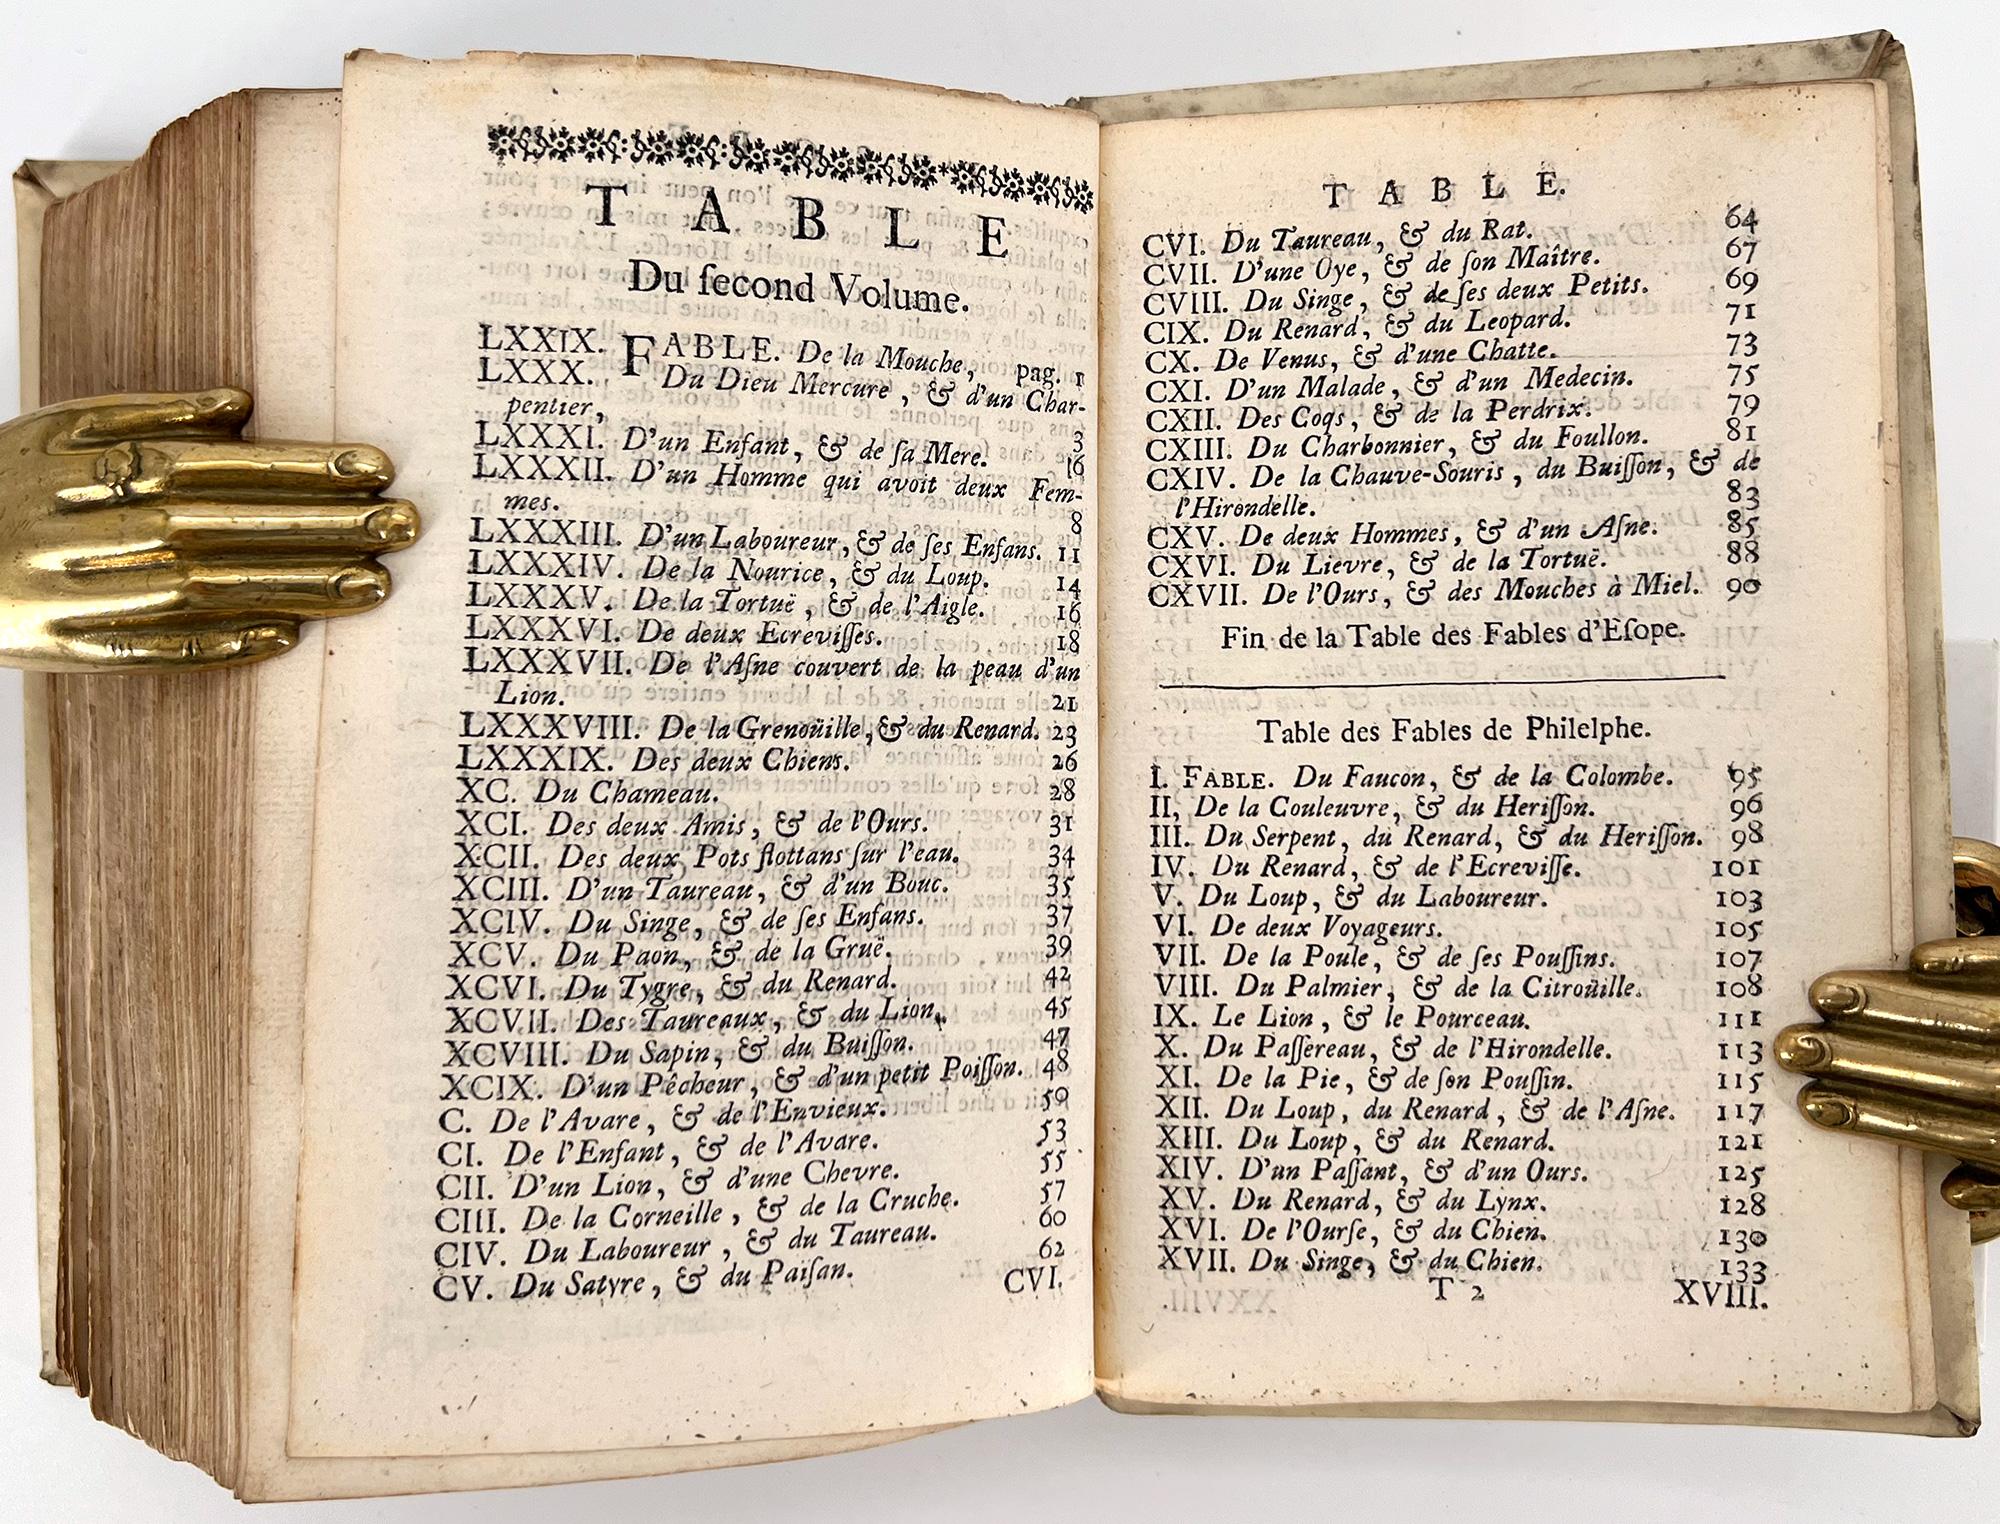 TABLE
Du ſecond Volume.
LXXIX. FABLE. De la Mouche, pag. 1
LXXX. Du Dieu Mercure, & d'un Char-
pentier, 3
LXXXI. D'un Enfant, & de ſa Mere. 16
LXXXII. D'un Homme qui avoit deux Fem-
mes. 8
LXXXIII. D'un Laboureur, & de ſes Enfans. 11
LXXXIV. De la Nourice, & du Loup. 14
LXXXV. De la Tortuë, & de l'Aigle. 16
LXXXVI. De deux Ecreviſſes. 18
LXXXVII. De l'Aſne couvert de la peau d'un
Lion. 21
LXXXVIII. De la Grenoüille, & du Renard. 23
LXXXIX. Des deux Chiens. 26
XC. Du Chameau. 28
XCI. Des deux Amis, & de l'Ours. 31
XCII. Des deux Pots flottans ſur l'eau. 34
XCIII. D'un Taureau, & d'un Bouc. 35
XCIV. Du Singe, & de ſes Enfans. 37
XCV. Du Paon, & de la Gruë. 39
XCVI. Du Tygre, & du Renard. 42
XCVII. Des Taureaux, & du Lion. 45
XCVIII. Du Sapin, & du Buiſſon. 47
XCIX. D'un Pêcheur, & d'un petit Poiſſon. 48
C. De l'Avare, & de l'Envieux. 50
CI. De l'Enfant, & de l'Avare. 53
CII. D'un Lion, & d'une Chevre. 55
CIII. De la Corneille, & de la Cruche. 57
CIV. Du Laboureur, & du Taureau. 60
CV. Du Satyre, & du Paiſan. 62
CVI.
TABLE.
CVI. Du Taureau, & du Rat. 64
CVII. D'une Oye, & de ſon Maître. 67
CVIII. Du Singe, & de ſes deux Petits. 69
CIX. Du Renard, & du Leopard. 71
CX. De Venus, & d'une Chatte. 73
CXI. D'un Malade, & d'un Medecin. 75
CXII. Des Coqs, & de la Perdrix. 79
CXIII. Du Charbonnier, & du Foullon. 81
CXIV. De la Chauve-Souris, du Buiſſon, & de
l'Hirondelle. 83
CXV. De deux Hommes, & d'un Aſne. 85
CXVI. Du Lievre, & de la Tortuë. 88
CXVII. De l'Ours, & des Mouches à Miel. 90
Fin de la Table des Fables d'Eſope.
Table des Fables de Philelphe.
I. FABLE. Du Faucon, & de la Colombe. 95
II, De la Couleuvre, & du Heriſſon. 96
III. Du Serpent, du Renard, & du Heriſſon. 98
IV. Du Renard, & de l'Ecreviſſe. 101
V. Du Loup, & du Laboureur. 103
VI. De deux Voyageurs. 105
VII. De la Poule, & de ſes Pouſſins. 107
VIII. Du Palmier, & de la Citroüille. 108
IX. Le Lion, & le Pourceau. 111
X. Du Paſſereau, & de l'Hirondelle. 113
XI. De la Pie, & de ſon Pouſſin. 115
XII. Du Loup, du Renard, & de l'Aſne. 117
XIII. Du Loup, & du Renard. 121
XIV. D'un Paſſant, & d'un Ours. 125
XV. Du Renard, & du Lynx. 128
XVI. De l'Ourſe, & du Chien. 130
XVII. Du Singe, & du Chien. 133
T 2 XVIII.